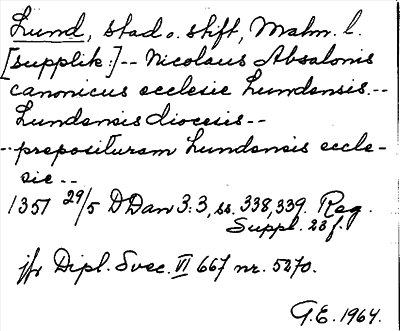 Lund, stad o. stift, Malm. l.
[supplik:]-- Nicolaus Absalonis
canonicus ecclesie Lundensis.--
Lundensis diocesis--
--preposituram Lundensis eccle-
sie--
1351 29/5 D Dan 3:3, ss. 338,339. Reg.
Suppl. 23 f.
jfr Dipl. Svec. VI 667 nr. 5270.
G.E. 1964.